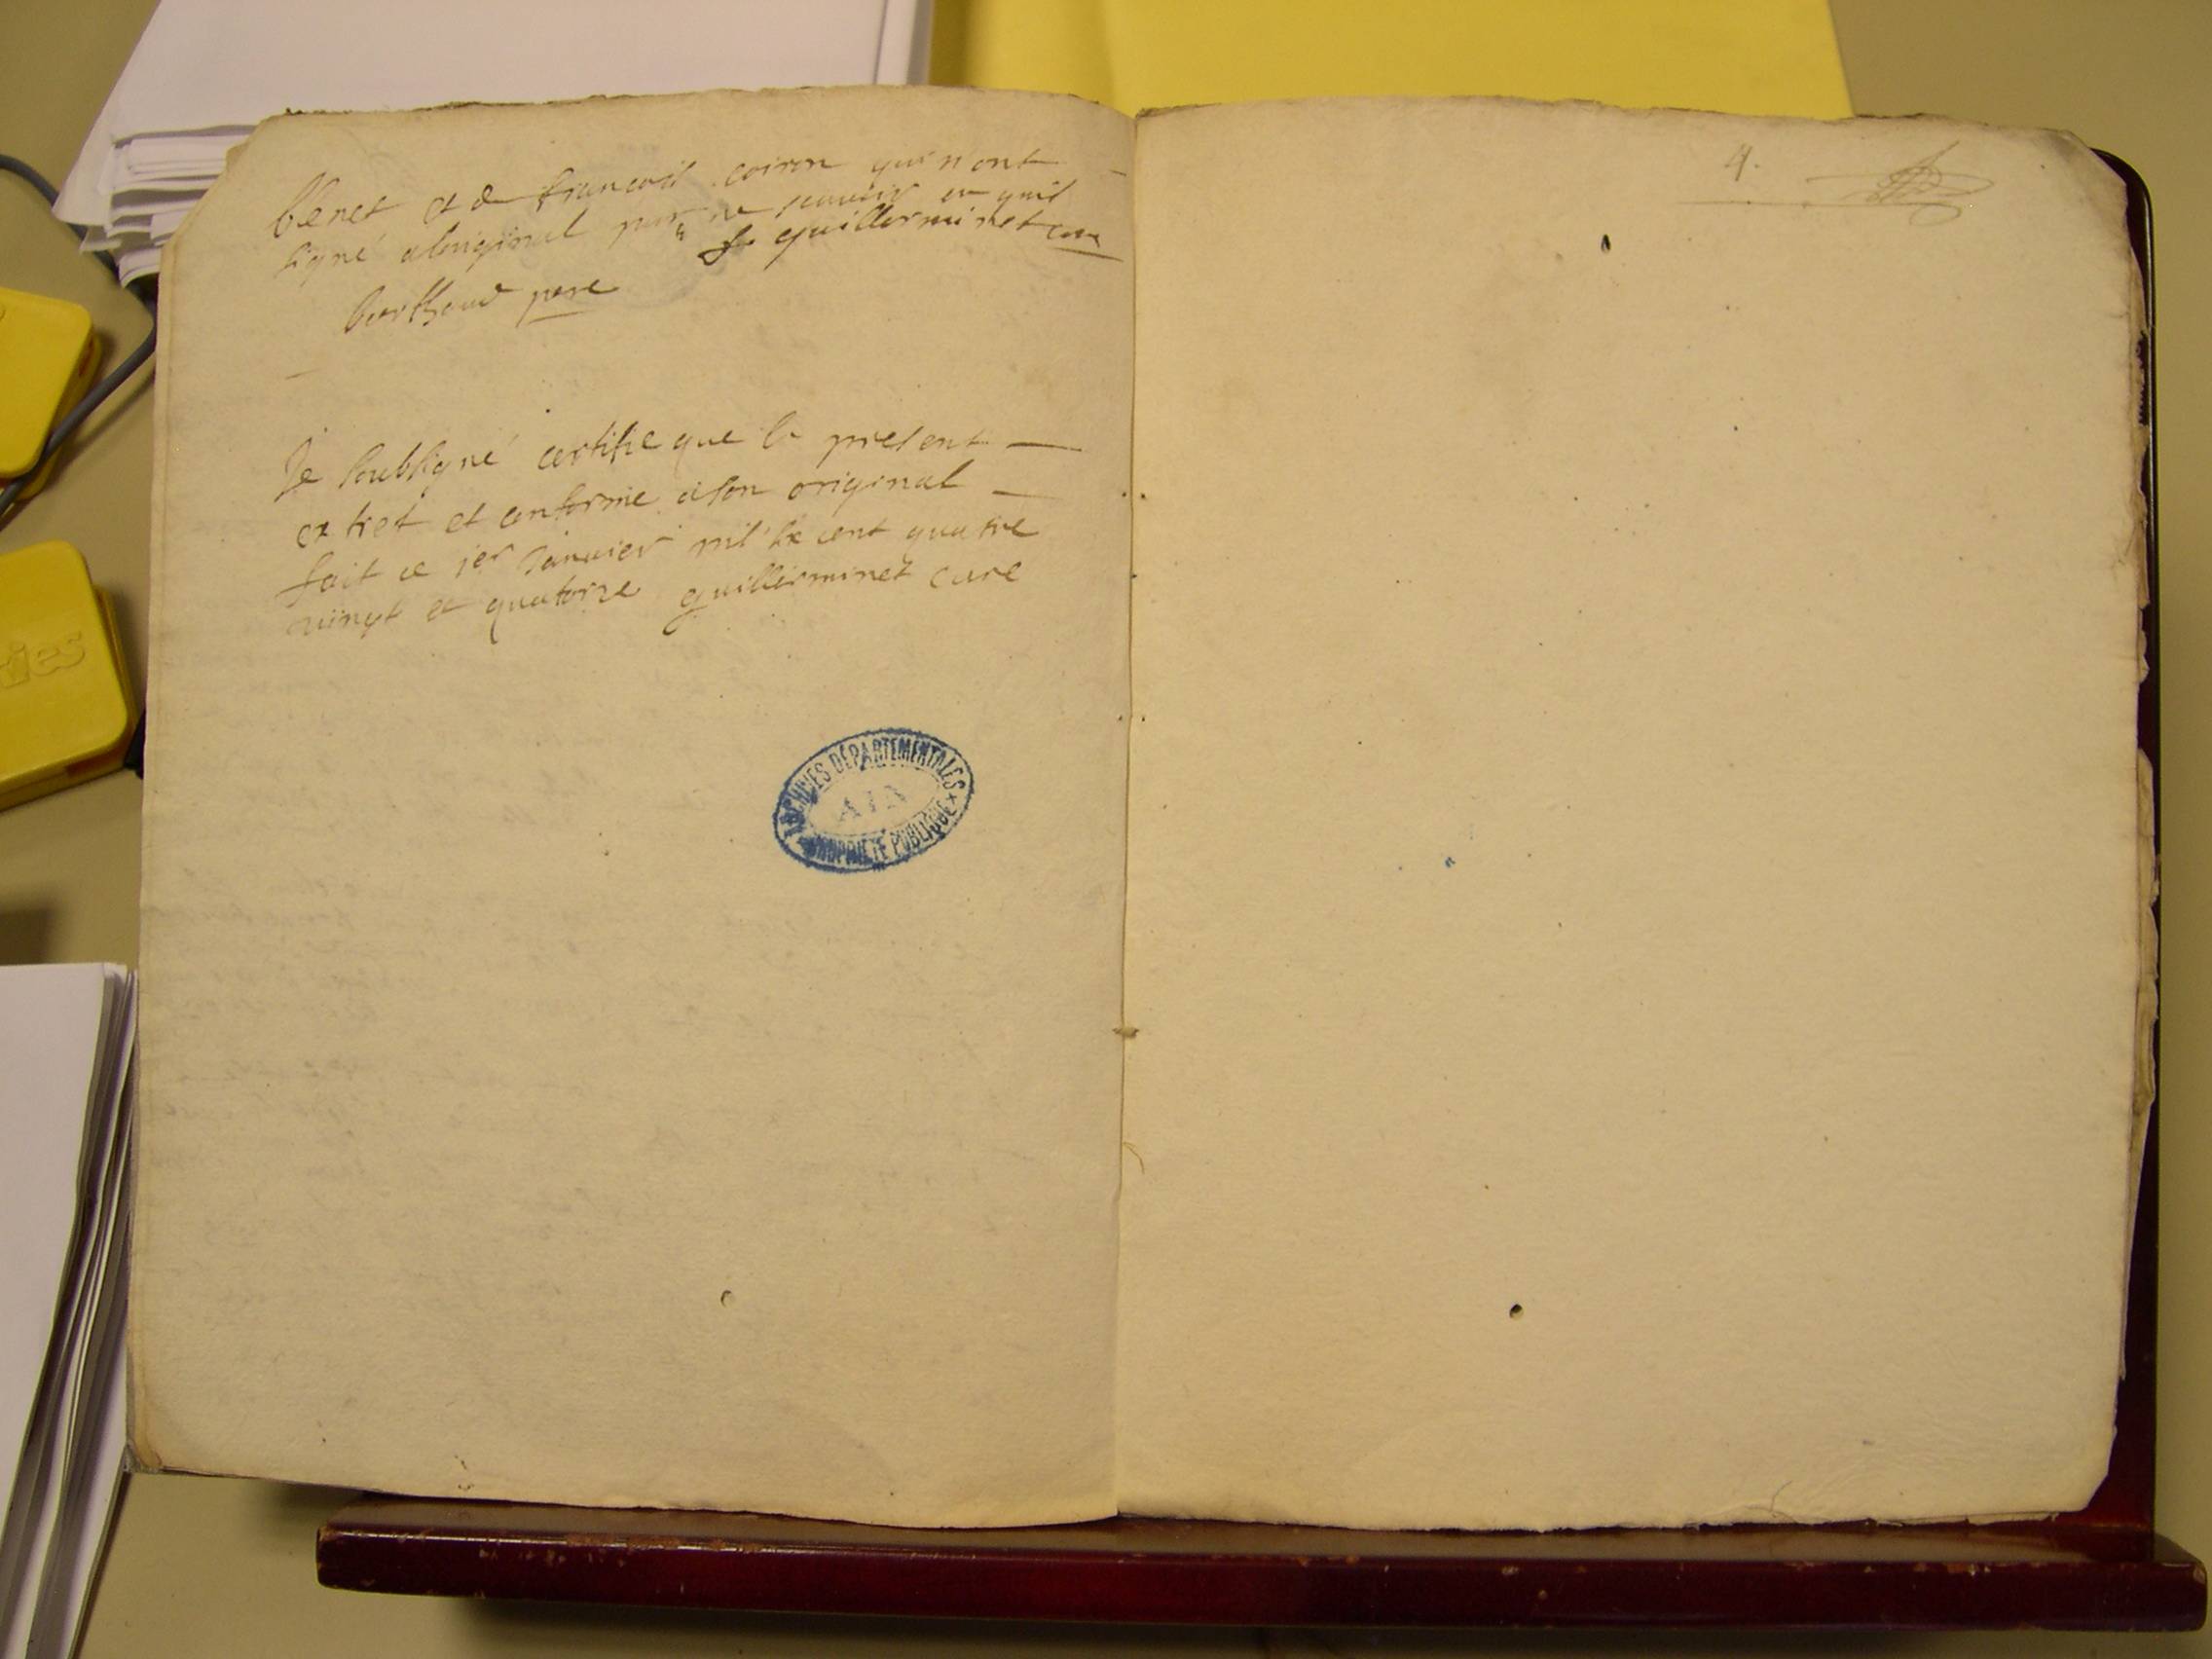 benet et de francois coiron qui n'ont
signé aloriginal pour ne scavoir
guillerminet cure
berthoud pere
Je soubsigné certifie que le present
extret et conforme a son original
fait ce 1er Janvier mil six cent quatre
vingt et quatorze guillerminet cure
ARCHIVES DÉPARTEMENTALES
AIN
PROPRIÉTÉ PUBLIQUE
4.
ries